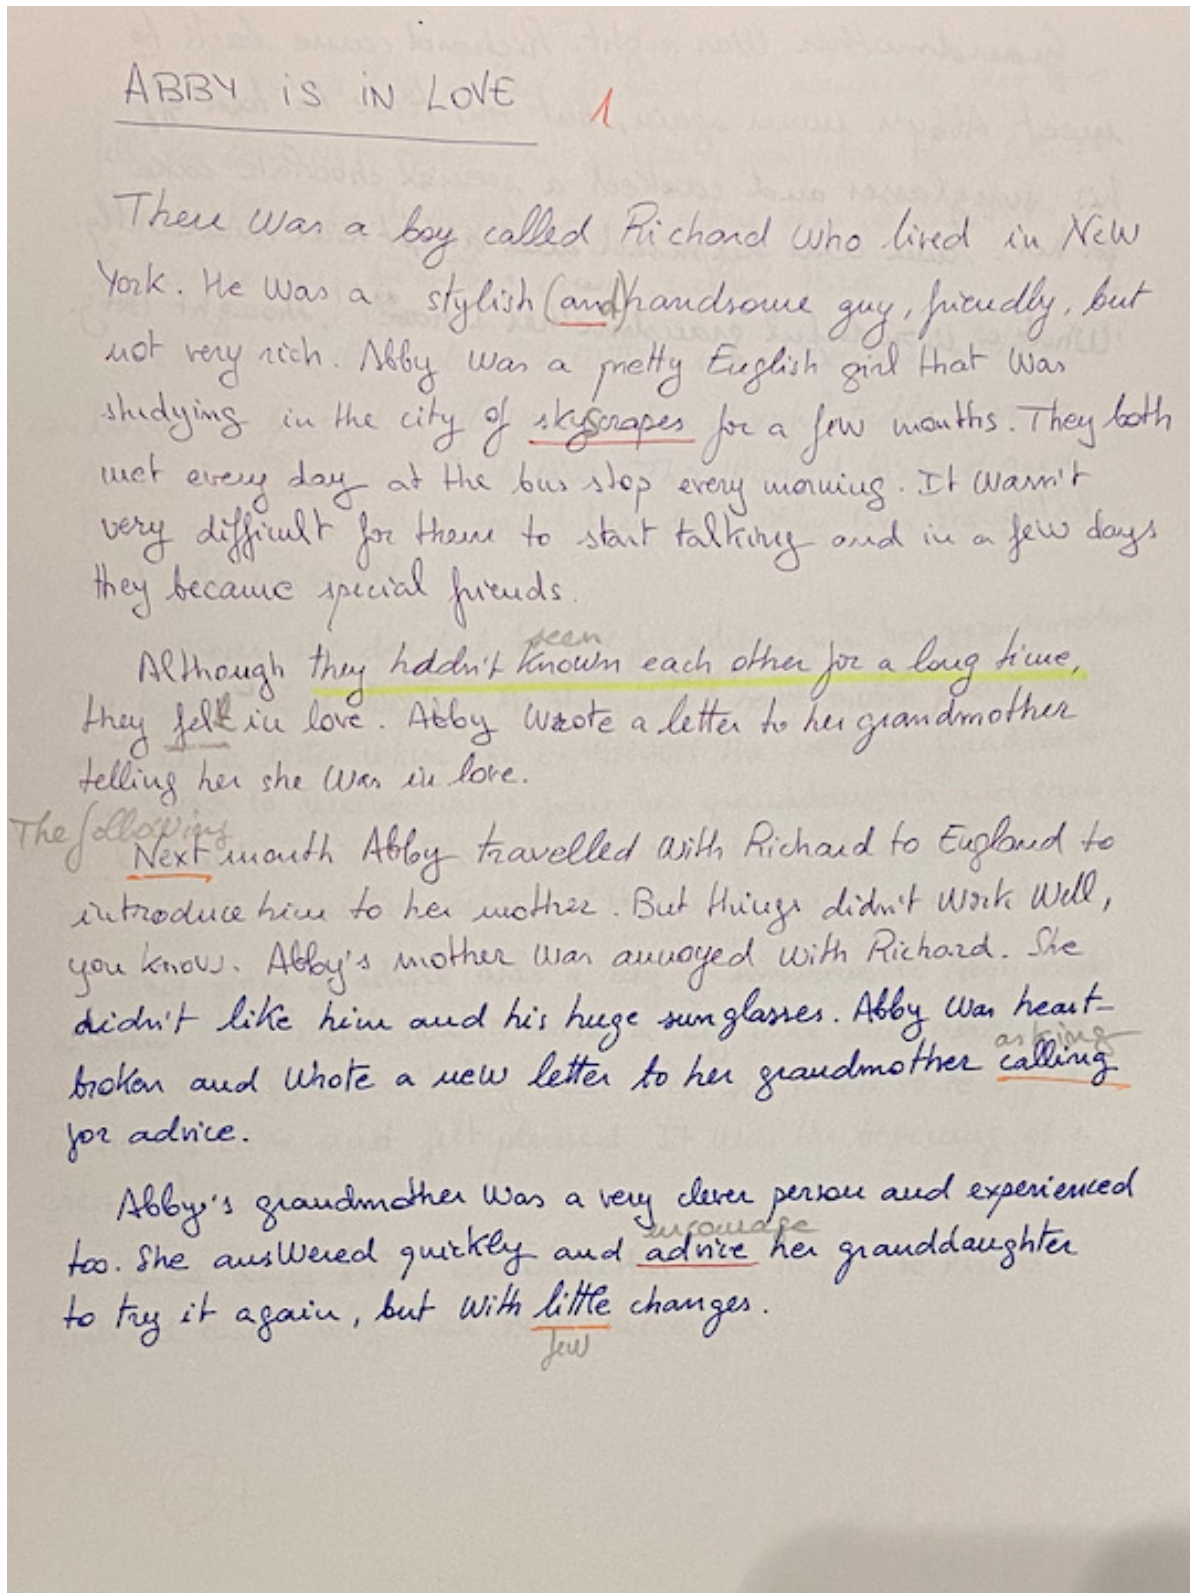 ABBY iS iN LOVE 1
There was a boy called Richard who lived in New
York. He was a stylish (and) handsome guy, friendly, but
not very rich. Abby was a pretty English girl that was
studying in the city of skyscrapes for a few months. They both
met every day at the bus stop every morning. It wasn't
very difficult for them to start talking and in a few days
they became special friends.
seen
Although they hadn't known each other for a long time,
they fell in love. Abby wrote a letter to her grandmother
telling her she was in love.
The following
Next month Abby travelled with Richard to England to
introduce him to her mother. But things didn't work well,
you know. Abby's mother was annoyed with Richard. She
didn't like him and his huge sunglasses. Abby was heart-
asking
broken and whote a new letter to her grandmother calling
for advice.
Abby's grandmother was a very clever person and experienced
encourage
too. She answered quickly and advice her granddaughter
to try it again, but with little changes.
few